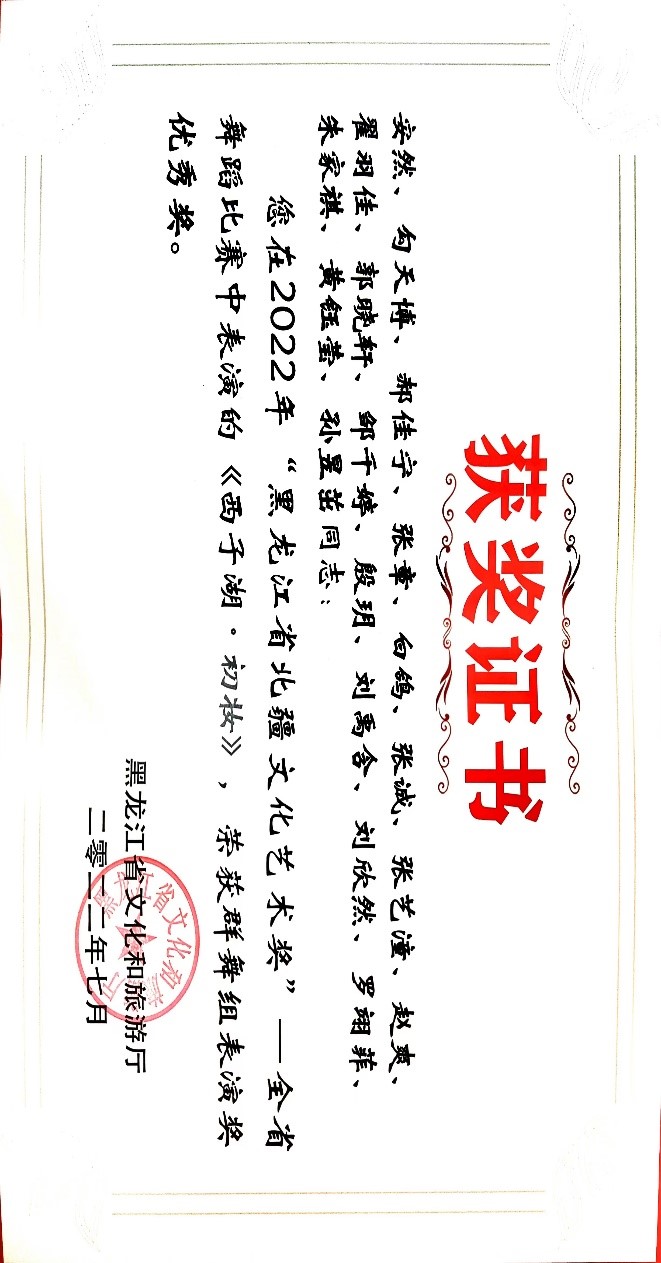 获奖证书
安然、勾天博、郝佳宁、张章、白鸽、张诚、张艺潼、赵爽、
翟羽佳、郭晓轩、邹千婷、殷玥、刘禹含、刘欣然、罗翊菲、
朱家祺、黄钰莹、孙昱茁同志：
您在2022年“黑龙江省北疆文化艺术奖”—全省
舞蹈比赛中表演的《西子湖·初妆》，荣获群舞组表演奖
优秀奖。
黑龙江省文化和旅游厅
二零二二年七月